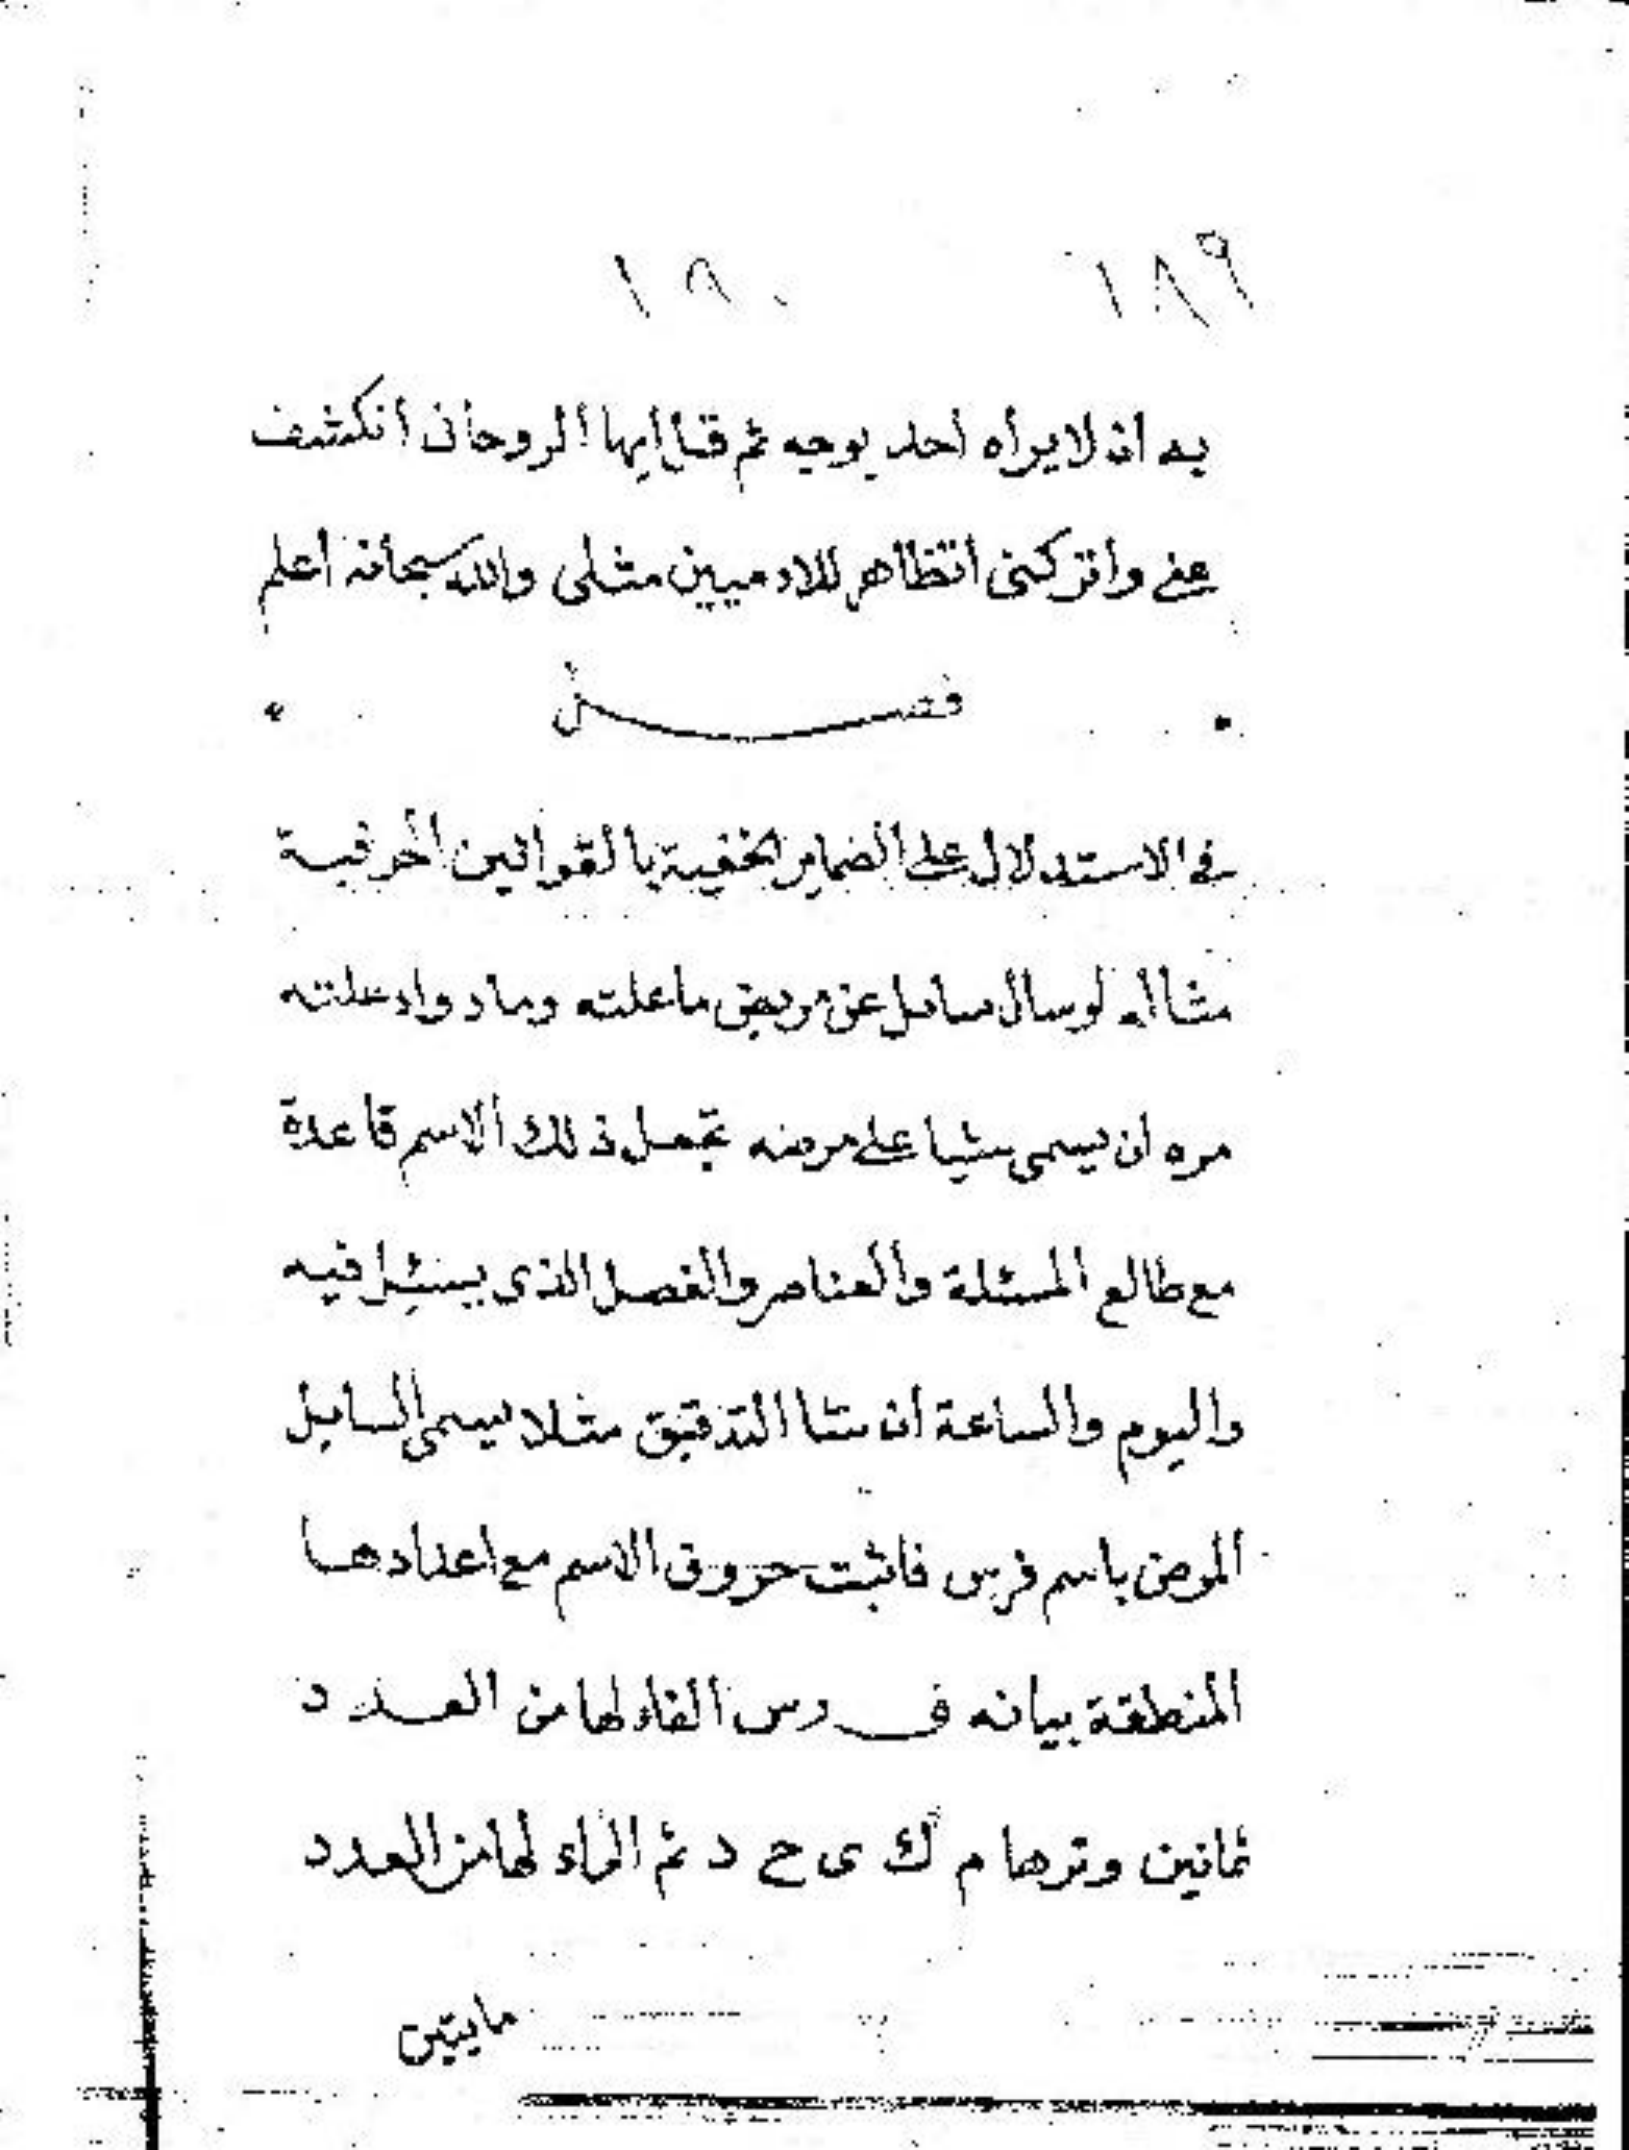 ١٨٩ ١٩٠
به ان لا يراه احد بوجه ثم قال ايها الروحانى انكشف
عنى واتركنى اتظاهر للادميين مثلى والله سبحانه اعلم
فصل
فى الاستدلال على الضماير الخفية بالقوانين الحرفية
مثاله لو سال سايل عن مريض ما علته وما دواء علته
مره ان يسمى شيا على مرضه تجعل ذلك الاسم قاعدة
مع طالع المسئلة والعناصر والفصل الذى يسئل فيه
واليوم والساعة ان شئا التدقيق مثلا يسمى السايل
المرض باسم فرس فاثبت حروف الاسم مع اعدادها
المنطقة بيانه ف ر س الفاء لها من العدد
ثمانين وترها م ك ى ح د ثم الراء لها من العدد
مايتين